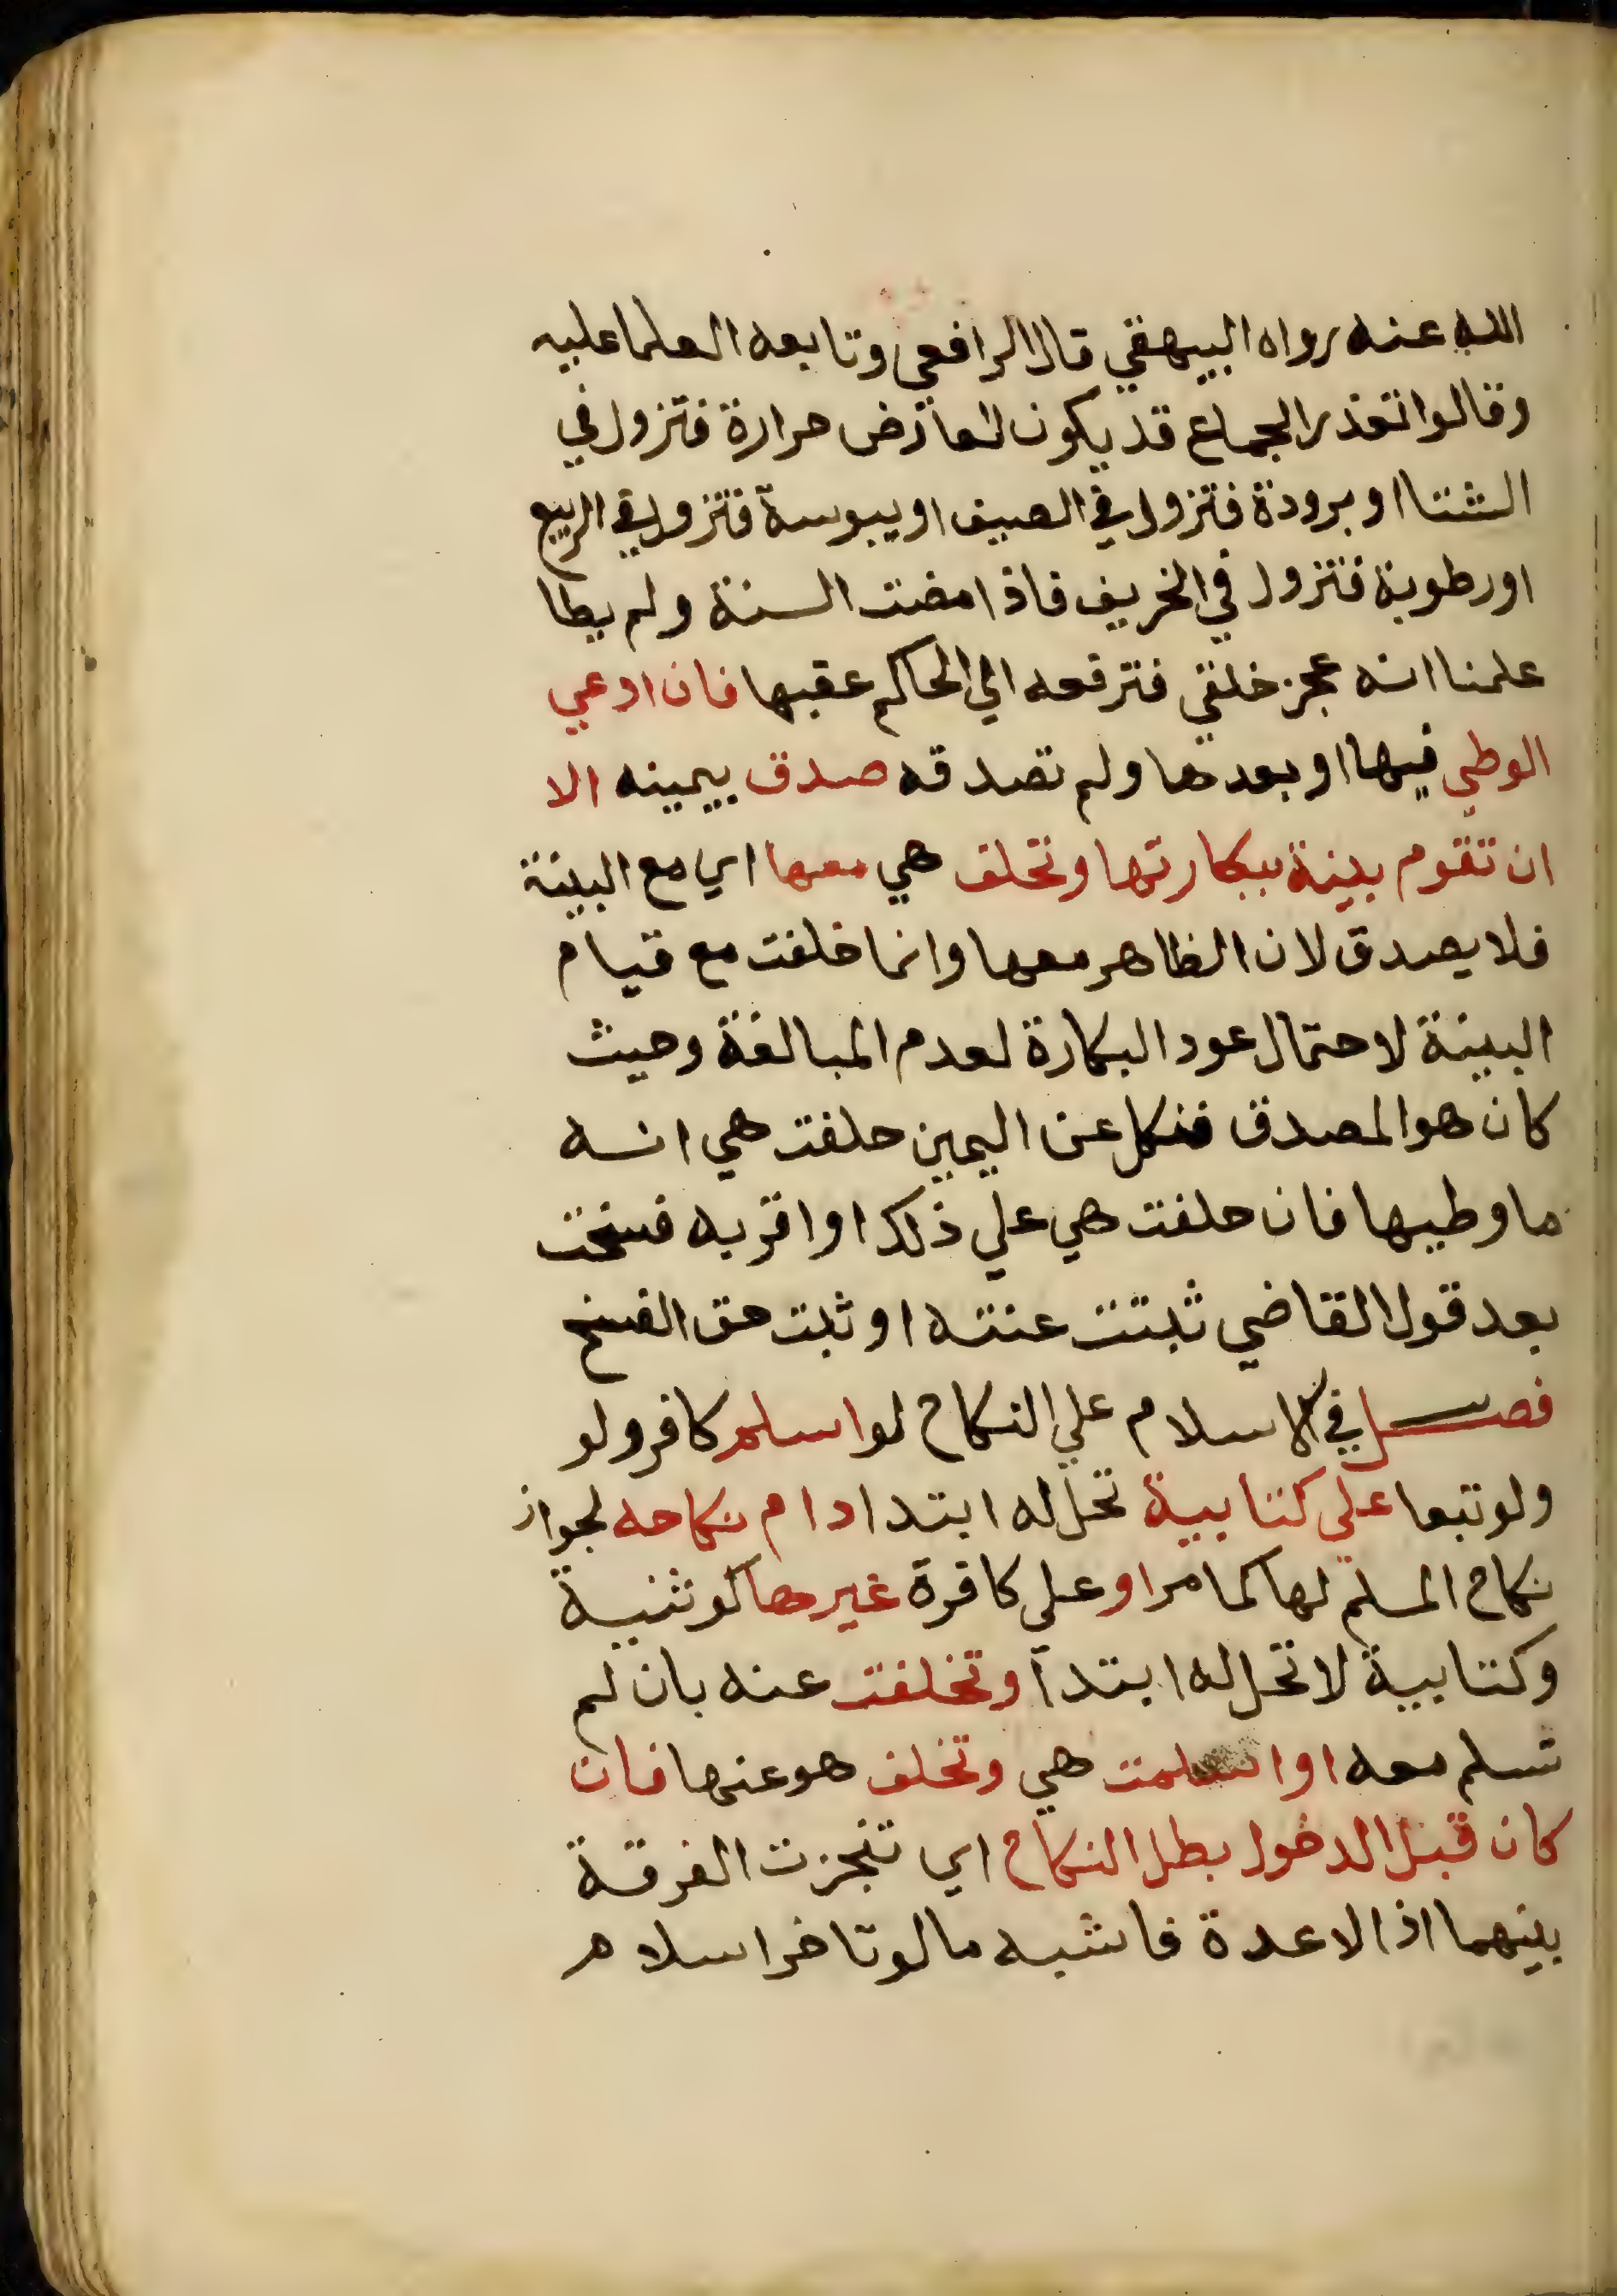 الله عنه رواه البيهقي قال الرافعي وتابعه العلما عليه
وقالوا تعذر الجماع قد يكون لعارض حرارة فتزول في
الشتا او برودة فتزول في الصيف او يبوسة فتزول في الربيع
او رطوبة فتزول في الخريف فاذا مضت السنة ولم يطا
علمنا انه عجز خلقي فترفعه الي الحاكم عقبها فان ادعي
الوطي فيها او بعدها ولم تصدقه صدق بيمينه الا
ان تقوم بينة ببكارتها وتحلف هي معها اي مع البينة
فلا يصدق لان الظاهر معها وانما خلفت مع قيام
البينة لاحتمال عود البكارة لعدم المبالغة وحيث
كان هو المصدق فنكل عن اليمين حلفت هي انه
ما وطيها فان حلفت هي علي ذلك او اقر به فسخت
بعد قول القاضي ثبتت عنته او ثبت حق الفسخ
فصل في الاسلام علي النكاح لو اسلم كافر ولو
ولو تبعا علي كتابية تحل له ابتدا دام نكاحه لجواز
نكاح المسلم لها كما مر او علي كافرة غيرها كوثنية
وكتابية لا تحل له ابتدآ وتخلفت عنه بان لم
تسلم معه او اسلمت هي وتخلف هو عنها فان
كان قبل الدخول بطل النكاح اي تنجزت الفرقة
بينهما اذ لا عدة فاشبه ما لو تاخر اسلام